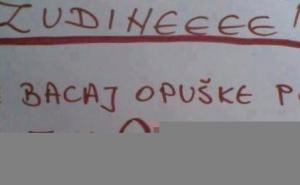 ZUDIHEEEE!
BACAJ OPUŠKE P